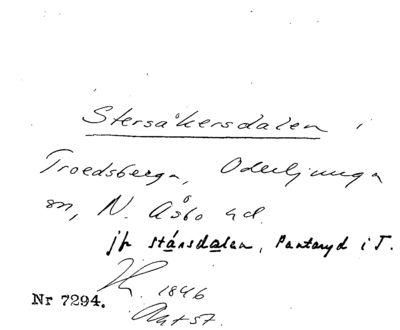 Stersåkersdalen i
Troedsberga, Oderljunga
sn, N. Åsbo hd.
jfr stånsdalen, Pantaryd i T.
1846
Nr 7294.